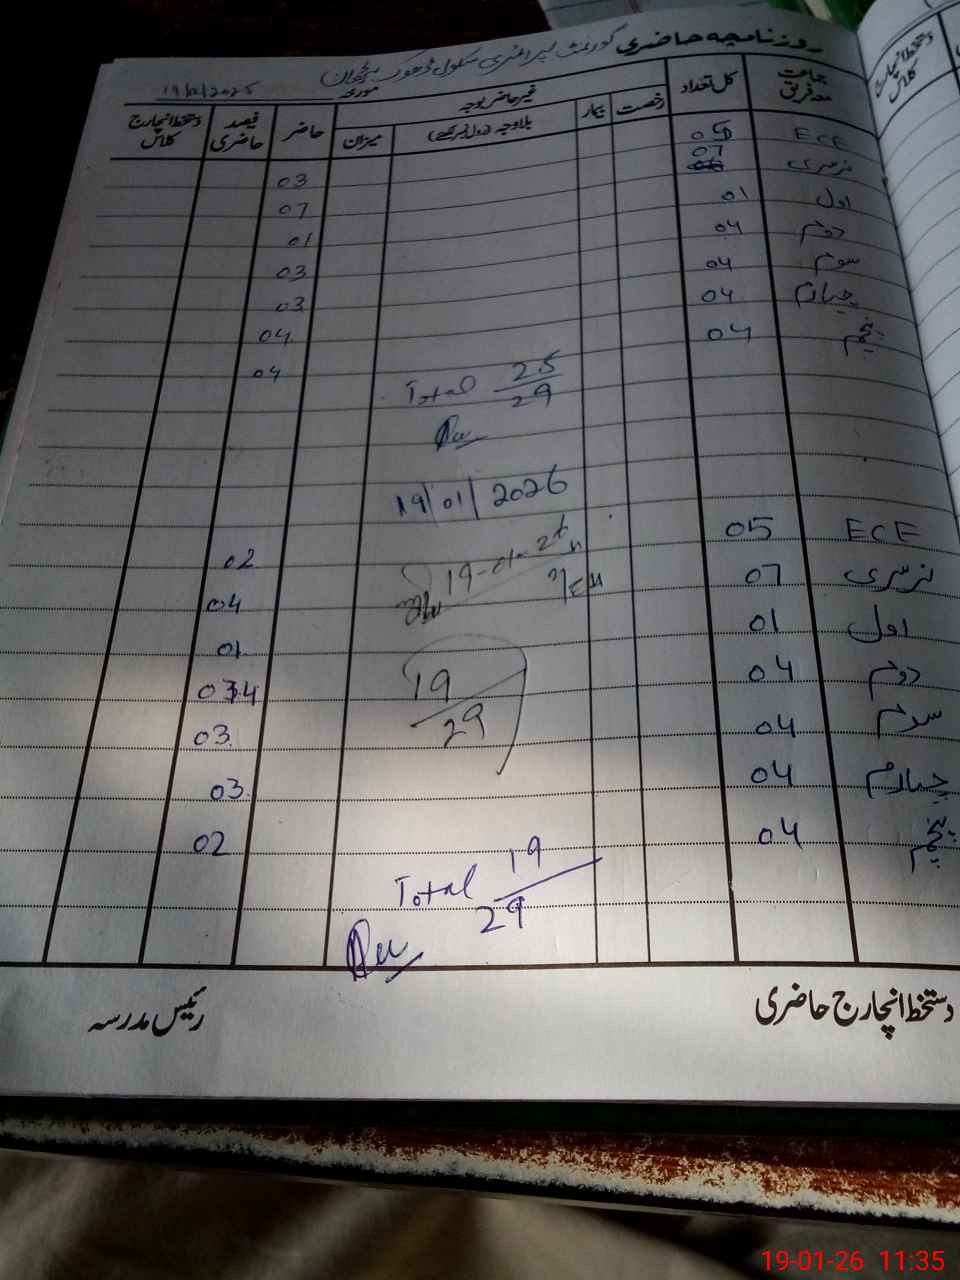 روزنامچہ حاضری گورنمنٹ پرائمری سکول ڈھوک
مورخہ 19/2025
جماعت معہ فریق کل تعداد غیر حاضر بوجہ رخصت بیمار بلاوجہ (رول نمبر لکھے) میزان حاضر فیصد حاضری دستخط انچارج کلاس
ECE 05 03
نرسری 07 07
اول 01 01
دوئم 04 03
سوئم 04 03
چہارم 04 04
پنجم 04 04
Total 25/29
19/01/2026
ECE 05 02
19-01-26
نرسری 07 04
اول 01 01
دوئم 04 034
19/29
سوئم 04 03
چہارم 04 03
پنجم 04 02
Total 19/29
دستخط انچارج حاضری رئیس مدرسہ
دستخط انچارج کلاس
19-01-26 11:35